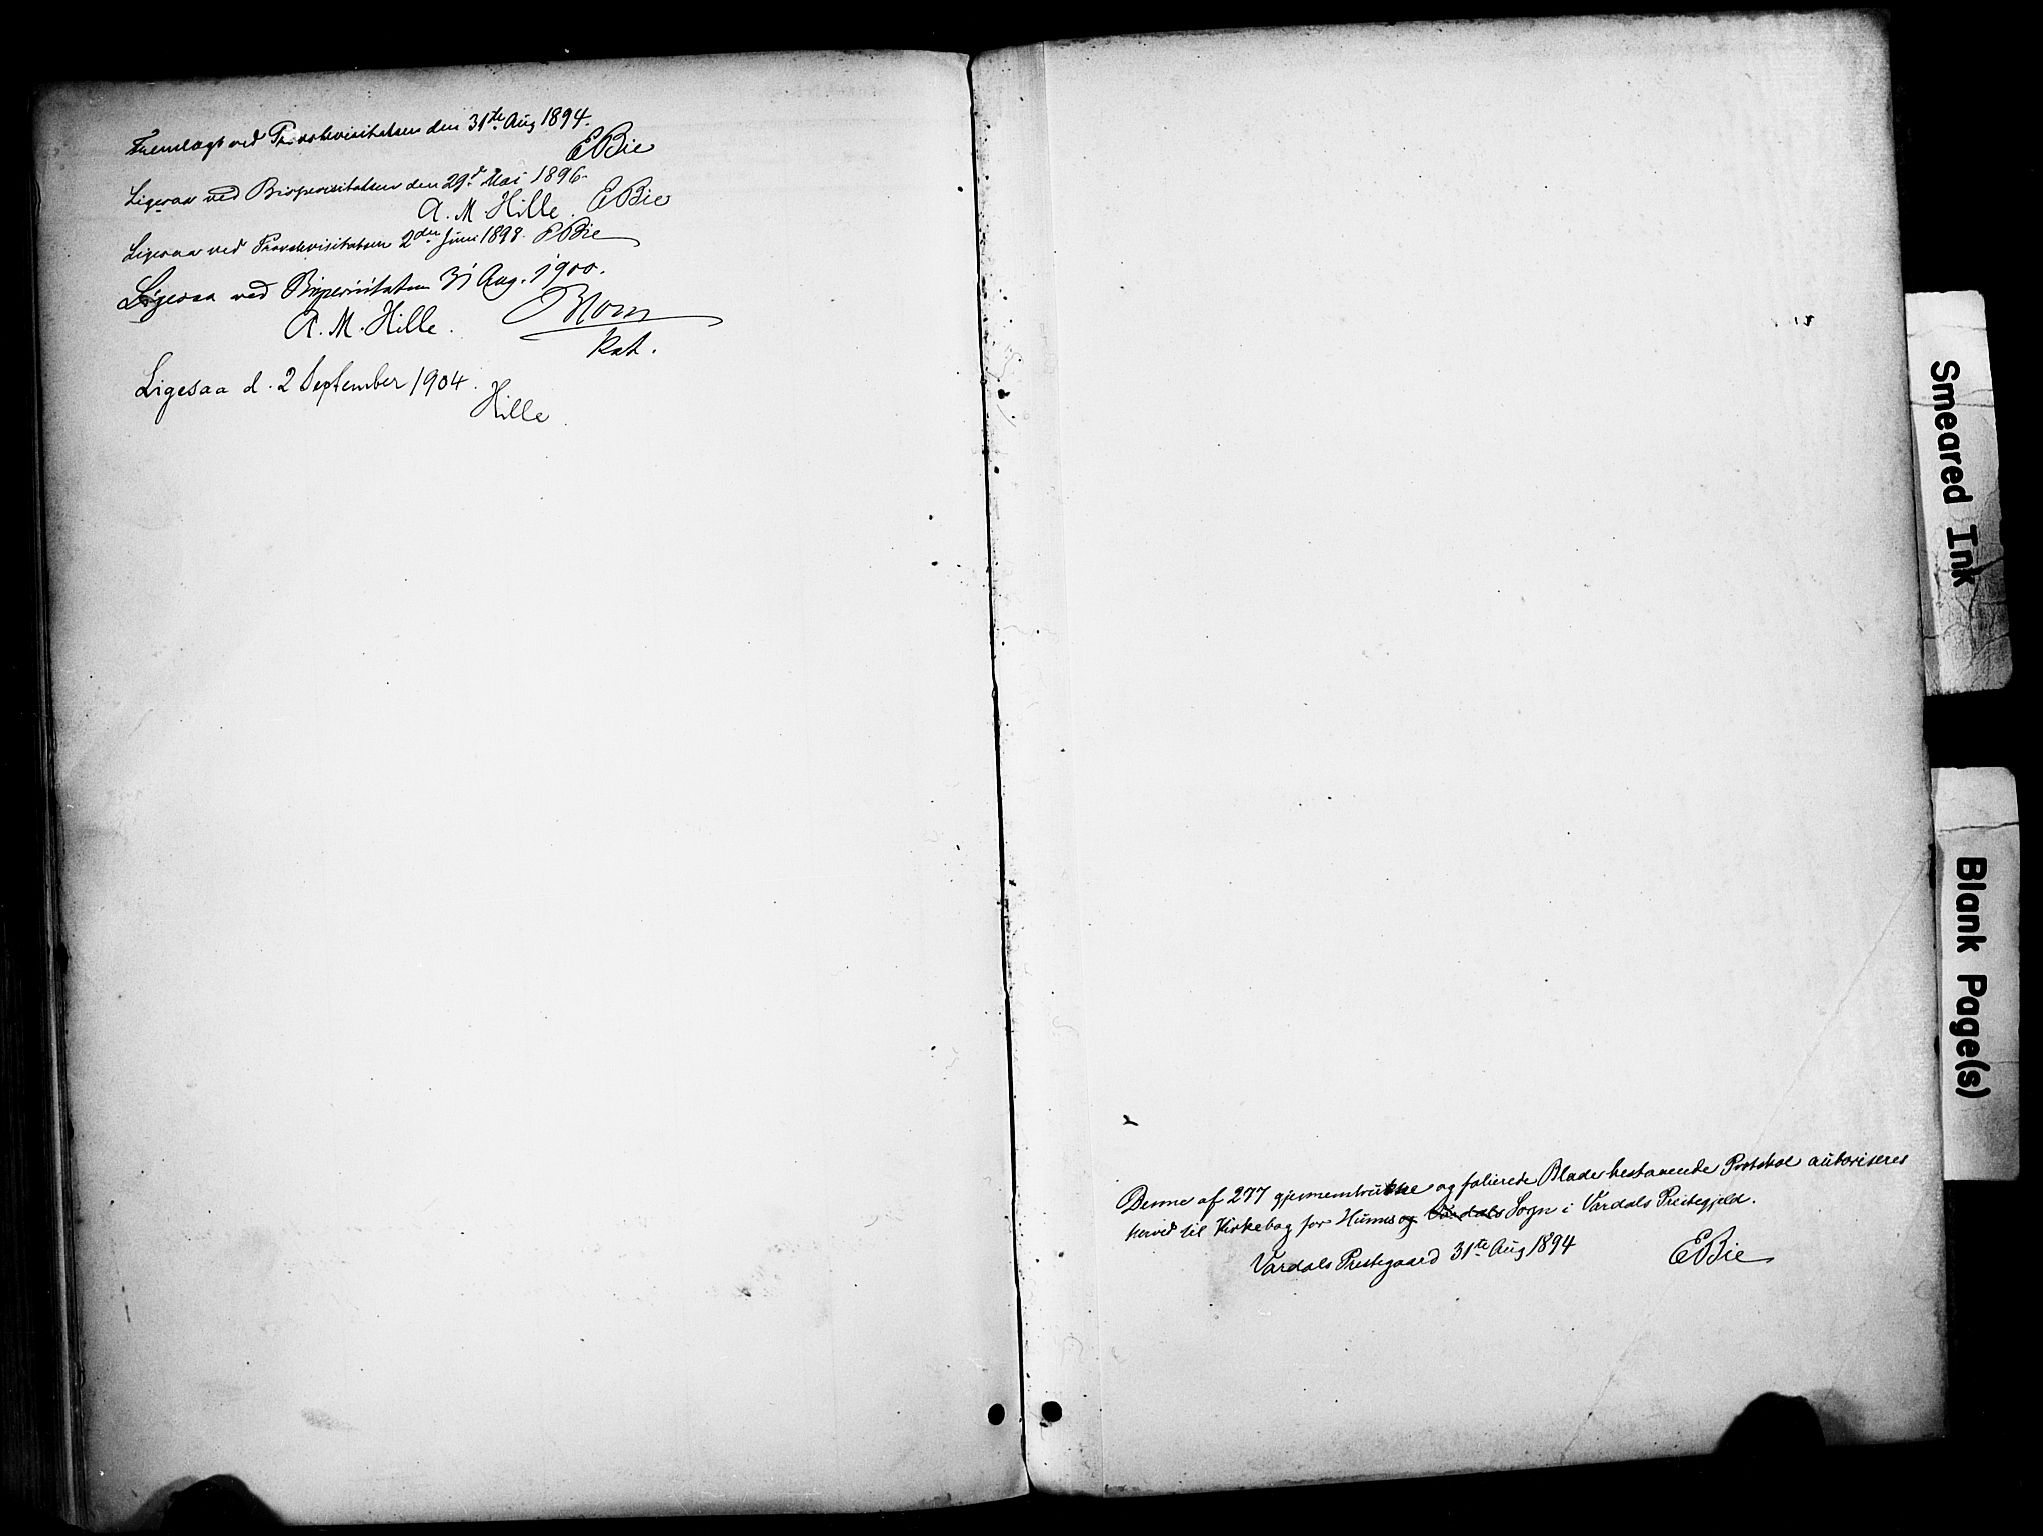 Fremlagt ved Provstevisitatsen den 31te Aug 1894.
EBie
Ligesaa ved Bispevisitatsen den 29d Mai 1896.
A. M. Hille. EBie
Ligesaa ved Provstevisitatsen 2den Juni 1898. EBie
Ligesaa ved Bispevisitatsen 31 Aug. 1900.
A. M. Hille. Blom
Kst.
Ligesaa d. 2 September 1904.
Hille.
Denne af 277 gjennemtrukne og folierede Blade bestaaende Protokol autoriseres
herved til Kirkebog for Hunns og Vardals Sogn i Vardals Prestegjeld.
Vardals Prestegaard 31te Aug 1894
EBie
Smeared Ink
Blank Page(s)